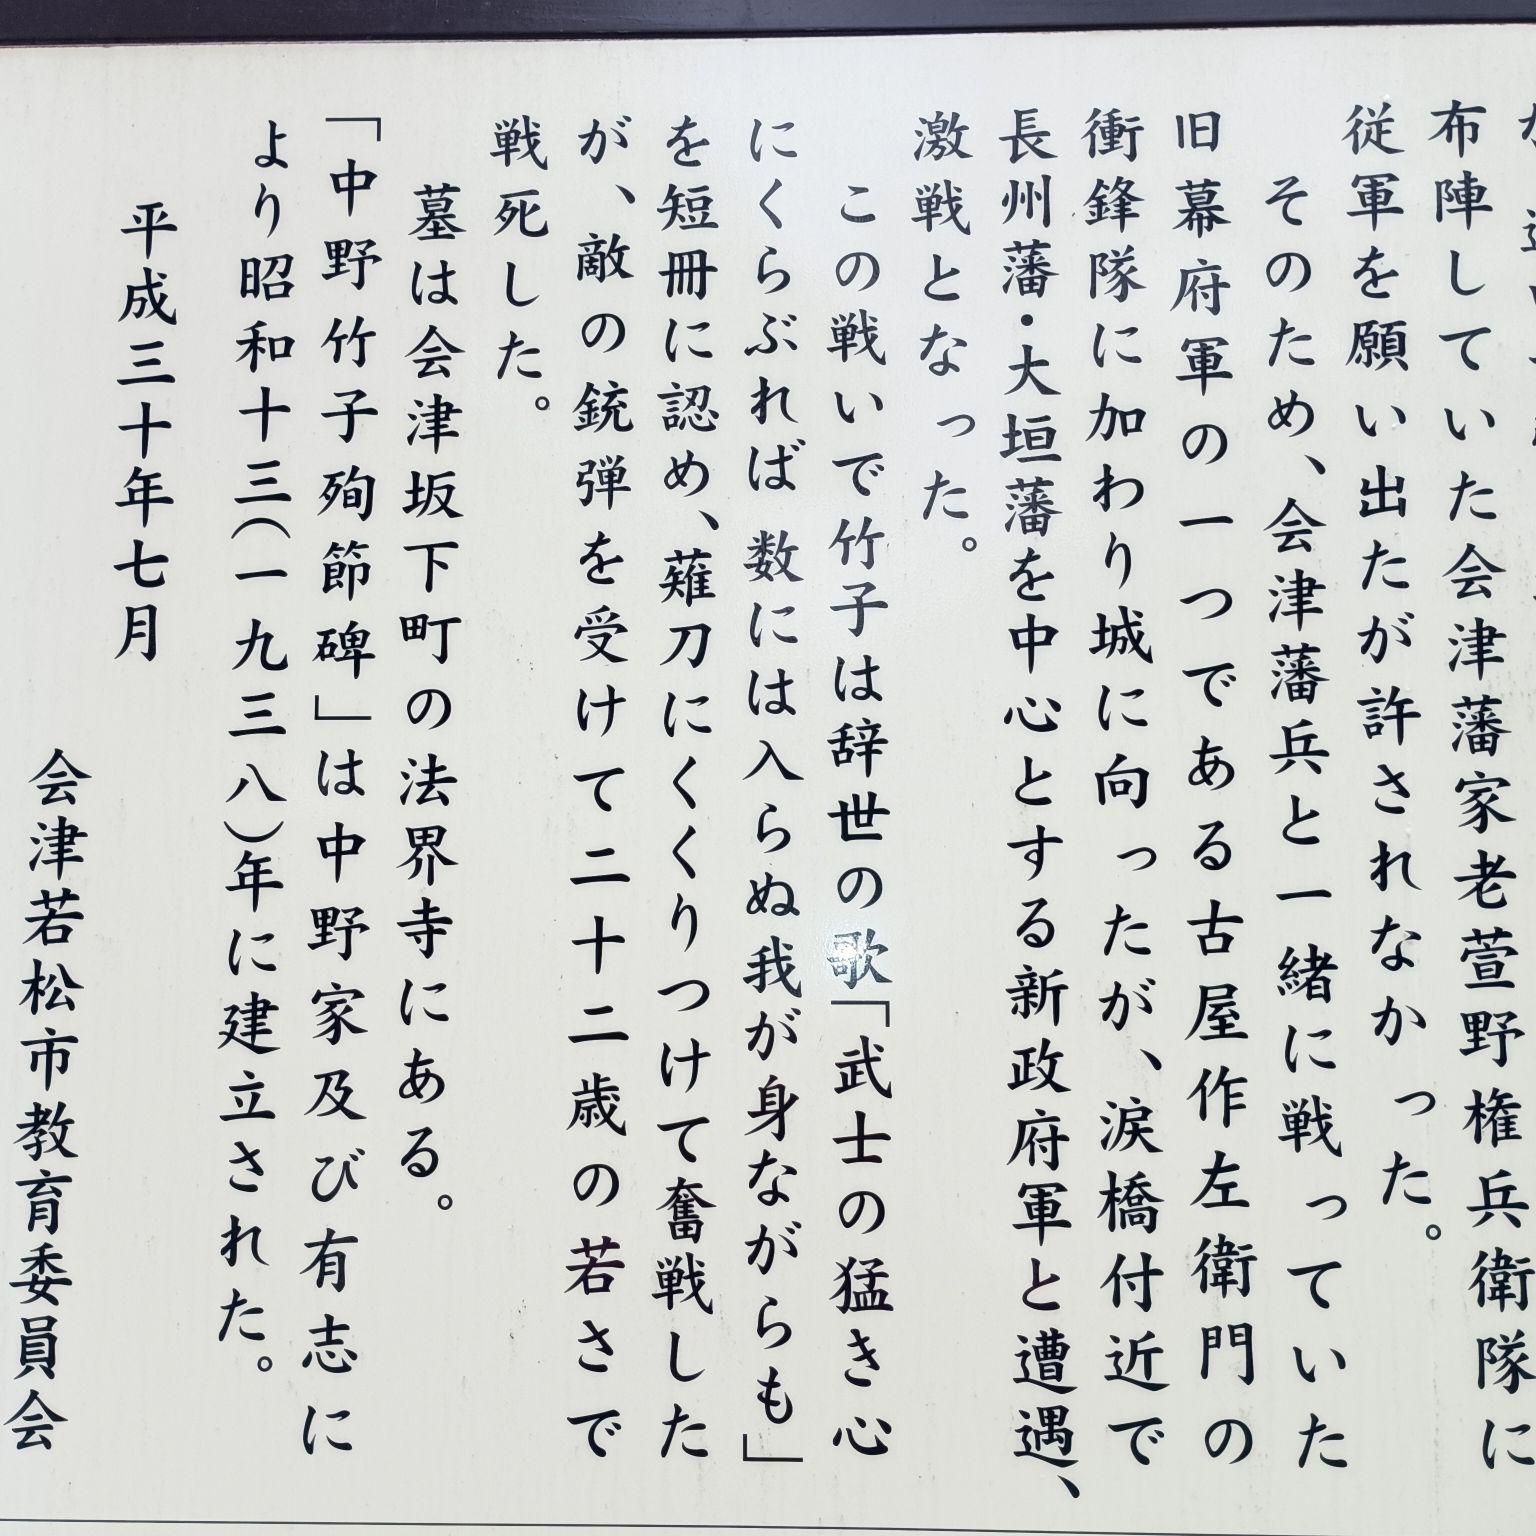 布陣していた会津藩家老萱野権兵衛隊に
従軍を願い出たが許されなかった。
そのため、会津藩兵と一緒に戦っていた
旧幕府軍の一つである古屋作左衛門の
衝鋒隊に加わり城に向ったが、涙橋付近で
長州藩・大垣藩を中心とする新政府軍と遭遇、
激戦となった。
この戦いで竹子は辞世の歌「武士の猛き心
にくらぶれば 数には入らぬ我が身ながらも」
を短冊に認め、薙刀にくくりつけて奮戦した
が、敵の銃弾を受けて二十二歳の若さで
戦死した。
墓は会津坂下町の法界寺にある。
「中野竹子殉節碑」は中野家及び有志に
より昭和十三(一九三八)年に建立された。
平成三十年七月
会津若松市教育委員会